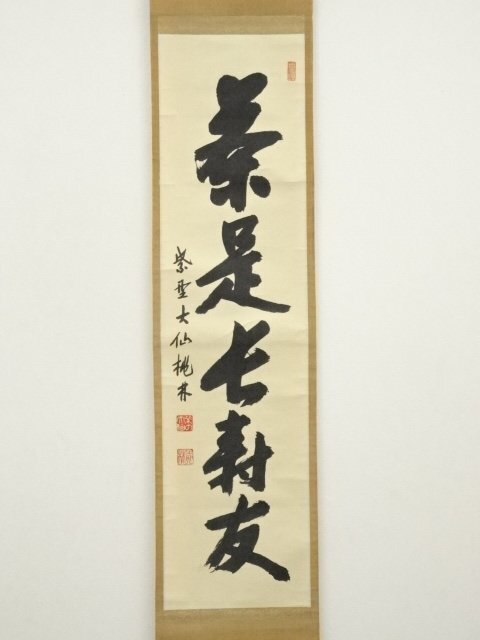 茶是長壽友
紫野大仙桃林